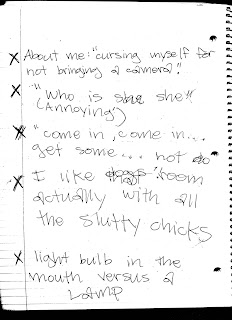 x About me: "cursing myself for
not bringing a camera".
x "Who is she she"
(Annoying")
x "come in, come in...
get some... not do
x I like that room
actually with all
the slutty chicks
x light bulb in the
mouth versus a
LAMP